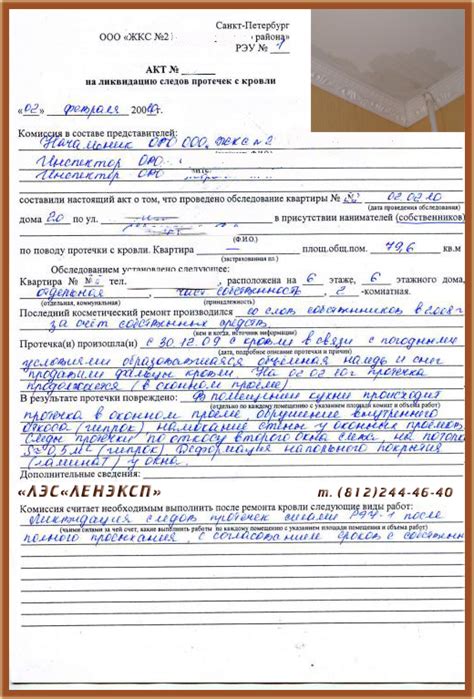 Санкт-Петербург
ООО «ЖКС №2 района»
РЭУ № 1
АКТ №
на ликвидацию следов протечек с кровли
«02» февраля 20010г.
Комиссия в составе представителей:
Начальник ОРО ООО ЖКС №2
Инспектор ОРО
Инспектор ОРО
составили настоящий акт о том, что проведено обследование квартиры № 02.02.10
(дата проведения обследования)
дома 20 по ул. в присутствии нанимателей (собственников)
(Ф.И.О.)
по поводу протечки с кровли. Квартира площ.общ.пом. 79,6 кв.м
Обследованием установлено следующее:
Квартира № тел. расположена на 6 этаже, 6 этажного дома,
отдельная, част. собственность, 2 -комнатная.
(отдельная, коммунальная) (принадлежность)
Последний косметический ремонт производился со слов собственников в 2008г
за счёт собственных средств.
(кем и когда, источник информации)
Протечка(и) произошла(и) с 30.12.09 с кровли в связи с погодными
(дата, подробное описание протечки и причин)
условиями образовавшаяся объемная наледь и снег
продавили фальцы кровли. На 02.02.10г протечка
продолжается (в оконном проёме)
В результате протечки повреждено: В помещении кухни происходит
(отдельно по каждому помещению с указанием площади комнат и объема работ)
протечка в оконном проёме обрушение внутреннего
откоса (гипрок) намокание стены у оконных проёмов.
Следы протечки по откосу второго окна слева, на потолке
S≈0,5м² (гипрок) Деформация напольного покрытия
(ламинат) у окна.
Дополнительные сведения:
«ЛЭС«ЛЕНЭКСП» т. (812)244-46-40
Комиссия считает необходимым выполнить после ремонта кровли следующие виды работ:
Ликвидация следов протечек силами РЭУ-1 после
(чьими силами за чей счет, какие выполнить работы по каждому помещению с указанием площади помещения и объема работ)
полного просыхания, с согласованием сроков с собственн